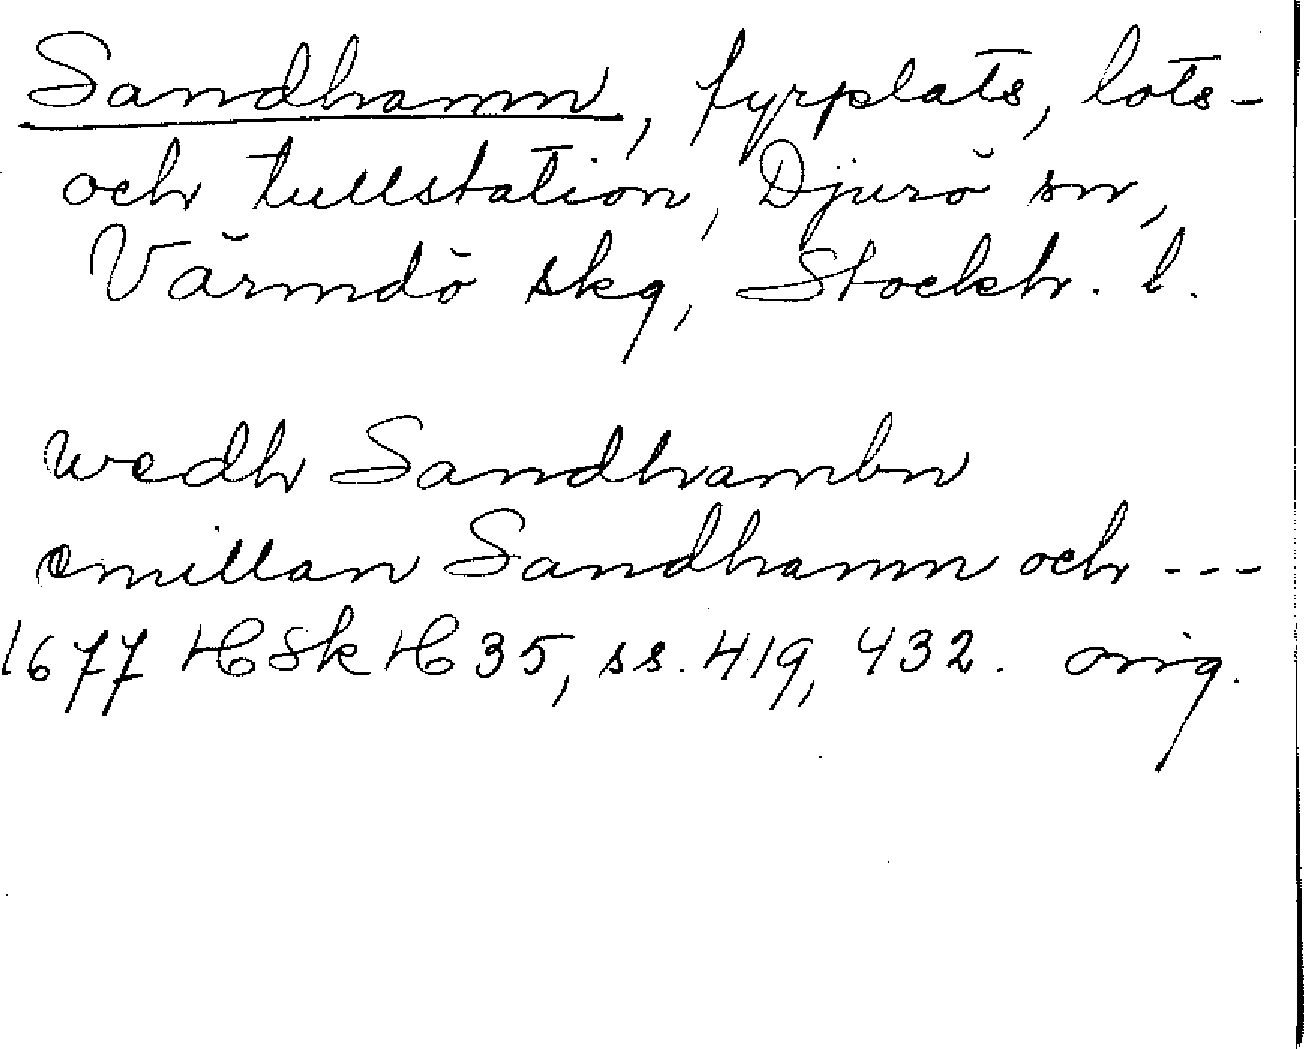 Sandhamn, fyrplats, lots-
och tullstation, Djurö sn,
Värmdö skg, Stockh. l.
wedh Sandhambn
emillan Sandhamn och ---
1677 HSk H 35, ss. 419, 432. orig.